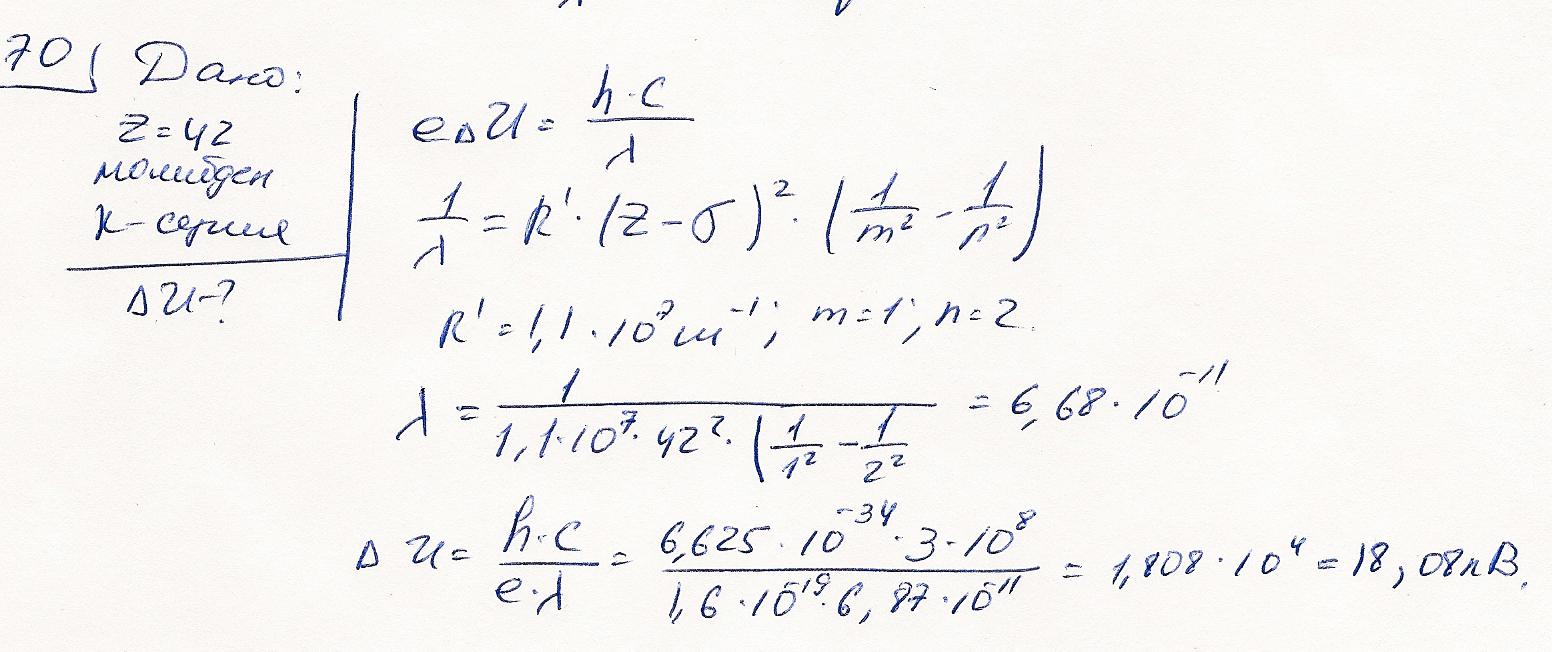 70) Дано:
Z=42
молибден
K-серия
ΔU-?
eΔU = h·c/λ
1/λ = R'·(Z-σ)²·(1/m² - 1/n²)
R' = 1,1·10⁷м⁻¹; m=1; n=2.
λ = 1/(1,1·10⁷·42²·(1/1² - 1/2² = 6,68·10⁻¹¹
ΔU = h·c/e·λ = 6,625·10⁻³⁴·3·10⁸/1,6·10⁻¹⁹·6,87·10⁻¹¹ = 1,808·10⁴ = 18,08кВ.